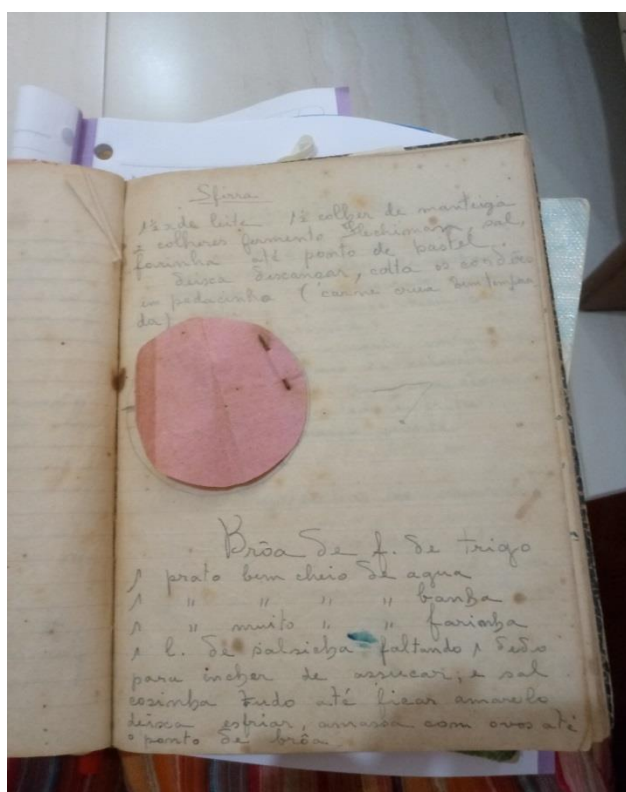 Sfirra
1 x de leite 1 colher de manteiga
2 colheres fermento Flechimann, sal,
farinha até ponto de pastel..
deixa descançar, cotta os cordões
em pedacinho (carne crua bem tempera
da)
Brôa de f. de trigo
1 prato bem cheio de agua
1 " " " " banha
1 " muito " " farinha
1 l. de salsicha faltando 1 dedo
para incher de assucar, e sal
cosinha tudo até ficar amarelo
deixa esfriar, amassa com ovos até
o ponto de brôa.